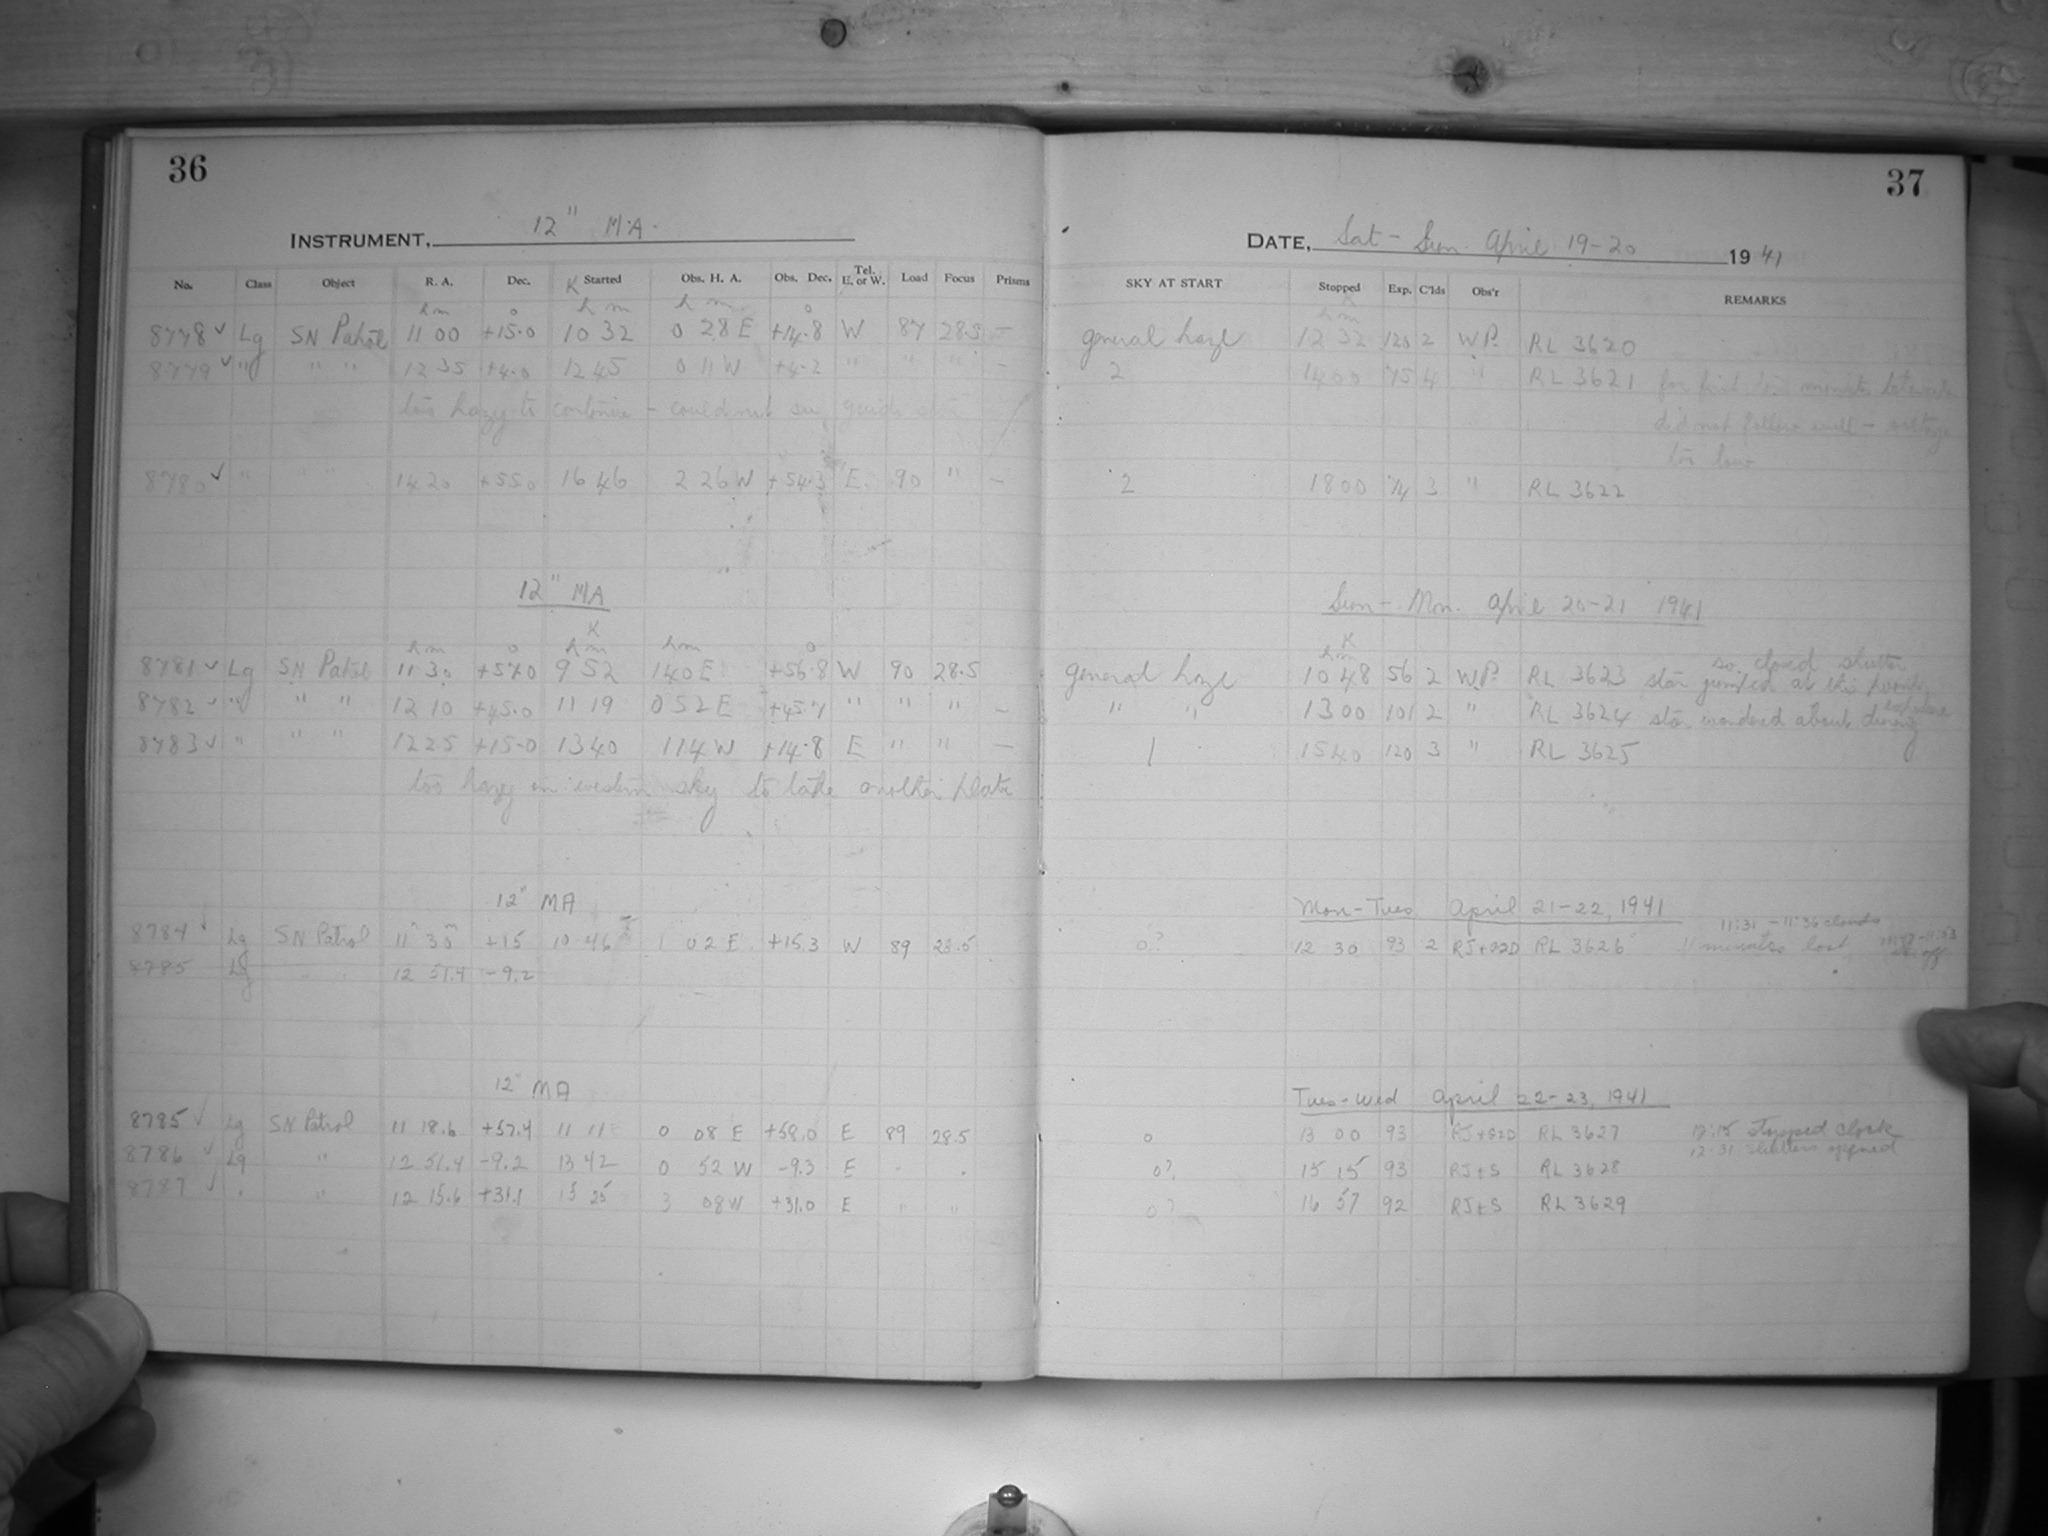 36
INSTRUMENT, 12" MA.
No. Class Object R. A. Dec. K Started Obs. H. A. Obs. Dec. Tel. E. or W. Load Focus Prisms
h m ° h m h m °
8778 ✓ Lg SN Patrol 11 00 +15.0 10 32 0 28 E +14.8 W 87 28.5 —
8779 ✓ " " " 12 35 +4.0 12 45 0 11 W +4.2 " " " —
too hazy to continue - could not see guide star
8780 ✓ " " " 14 20 +55.0 16 46 2 26 W +54.3 E 90 " —
12" MA
K
h m ° h m h m °
8781 ✓ Lg SN Patrol 11 30 +57.0 9 52 1 40 E +56.8 W 90 28.5
8782 ✓ " " " 12 10 +45.0 11 19 0 52 E +45.1 " " " —
8783 ✓ " " " 12 25 +15.0 13 40 1 14 W +14.8 E " " —
too hazy in western sky to take another plate
12" MA
8784 ✓ Lg SN Patrol 11h 30m +15 10 46 1 02 E +15.3 W 89 28.5
8785 Lg " " 12 51.4 -9.2
12" MA
8785 ✓ Lg SN Patrol 11 18.6 +57.4 11 11 0 08 E +58.0 E 89 28.5
8786 ✓ Lg " 12 51.4 -9.2 13 42 0 52 W -9.3 E " "
8787 ✓ " " 12 15.6 +31.1 15 25 3 08 W +31.0 E " "
37
DATE, Sat - Sun. April 19-20 1941
SKY AT START Stopped Exp. C'lds Obs'r REMARKS
K
h m
general haze 12 32 120 2 WP. RL 3620
2 14 00 75 4 " RL 3621 for first ten minutes
did not follow well - voltage
too low
2 18 00 74 3 " RL 3622
Sun - Mon. April 20-21 1941
K
h m
so closed shutter
general haze 10 48 56 2 WP. RL 3623 star jumped at this point
" " 13 00 101 2 " RL 3624 star wandered about during exposure
1 15 40 120 3 " RL 3625
Mon-Tues April 21-22, 1941
11:31 - 11:36 clouds
0? 12 30 93 2 RJ+S2D RL 3626 11 minutes lost,
Tues-Wed April 22-23, 1941
0 13 00 93 RJ+S2D RL 3627 12:15 stopped clock
12:31 shutters opened
0? 15 15 93 RJ+S RL 3628
0? 16 57 92 RJ+S RL 3629